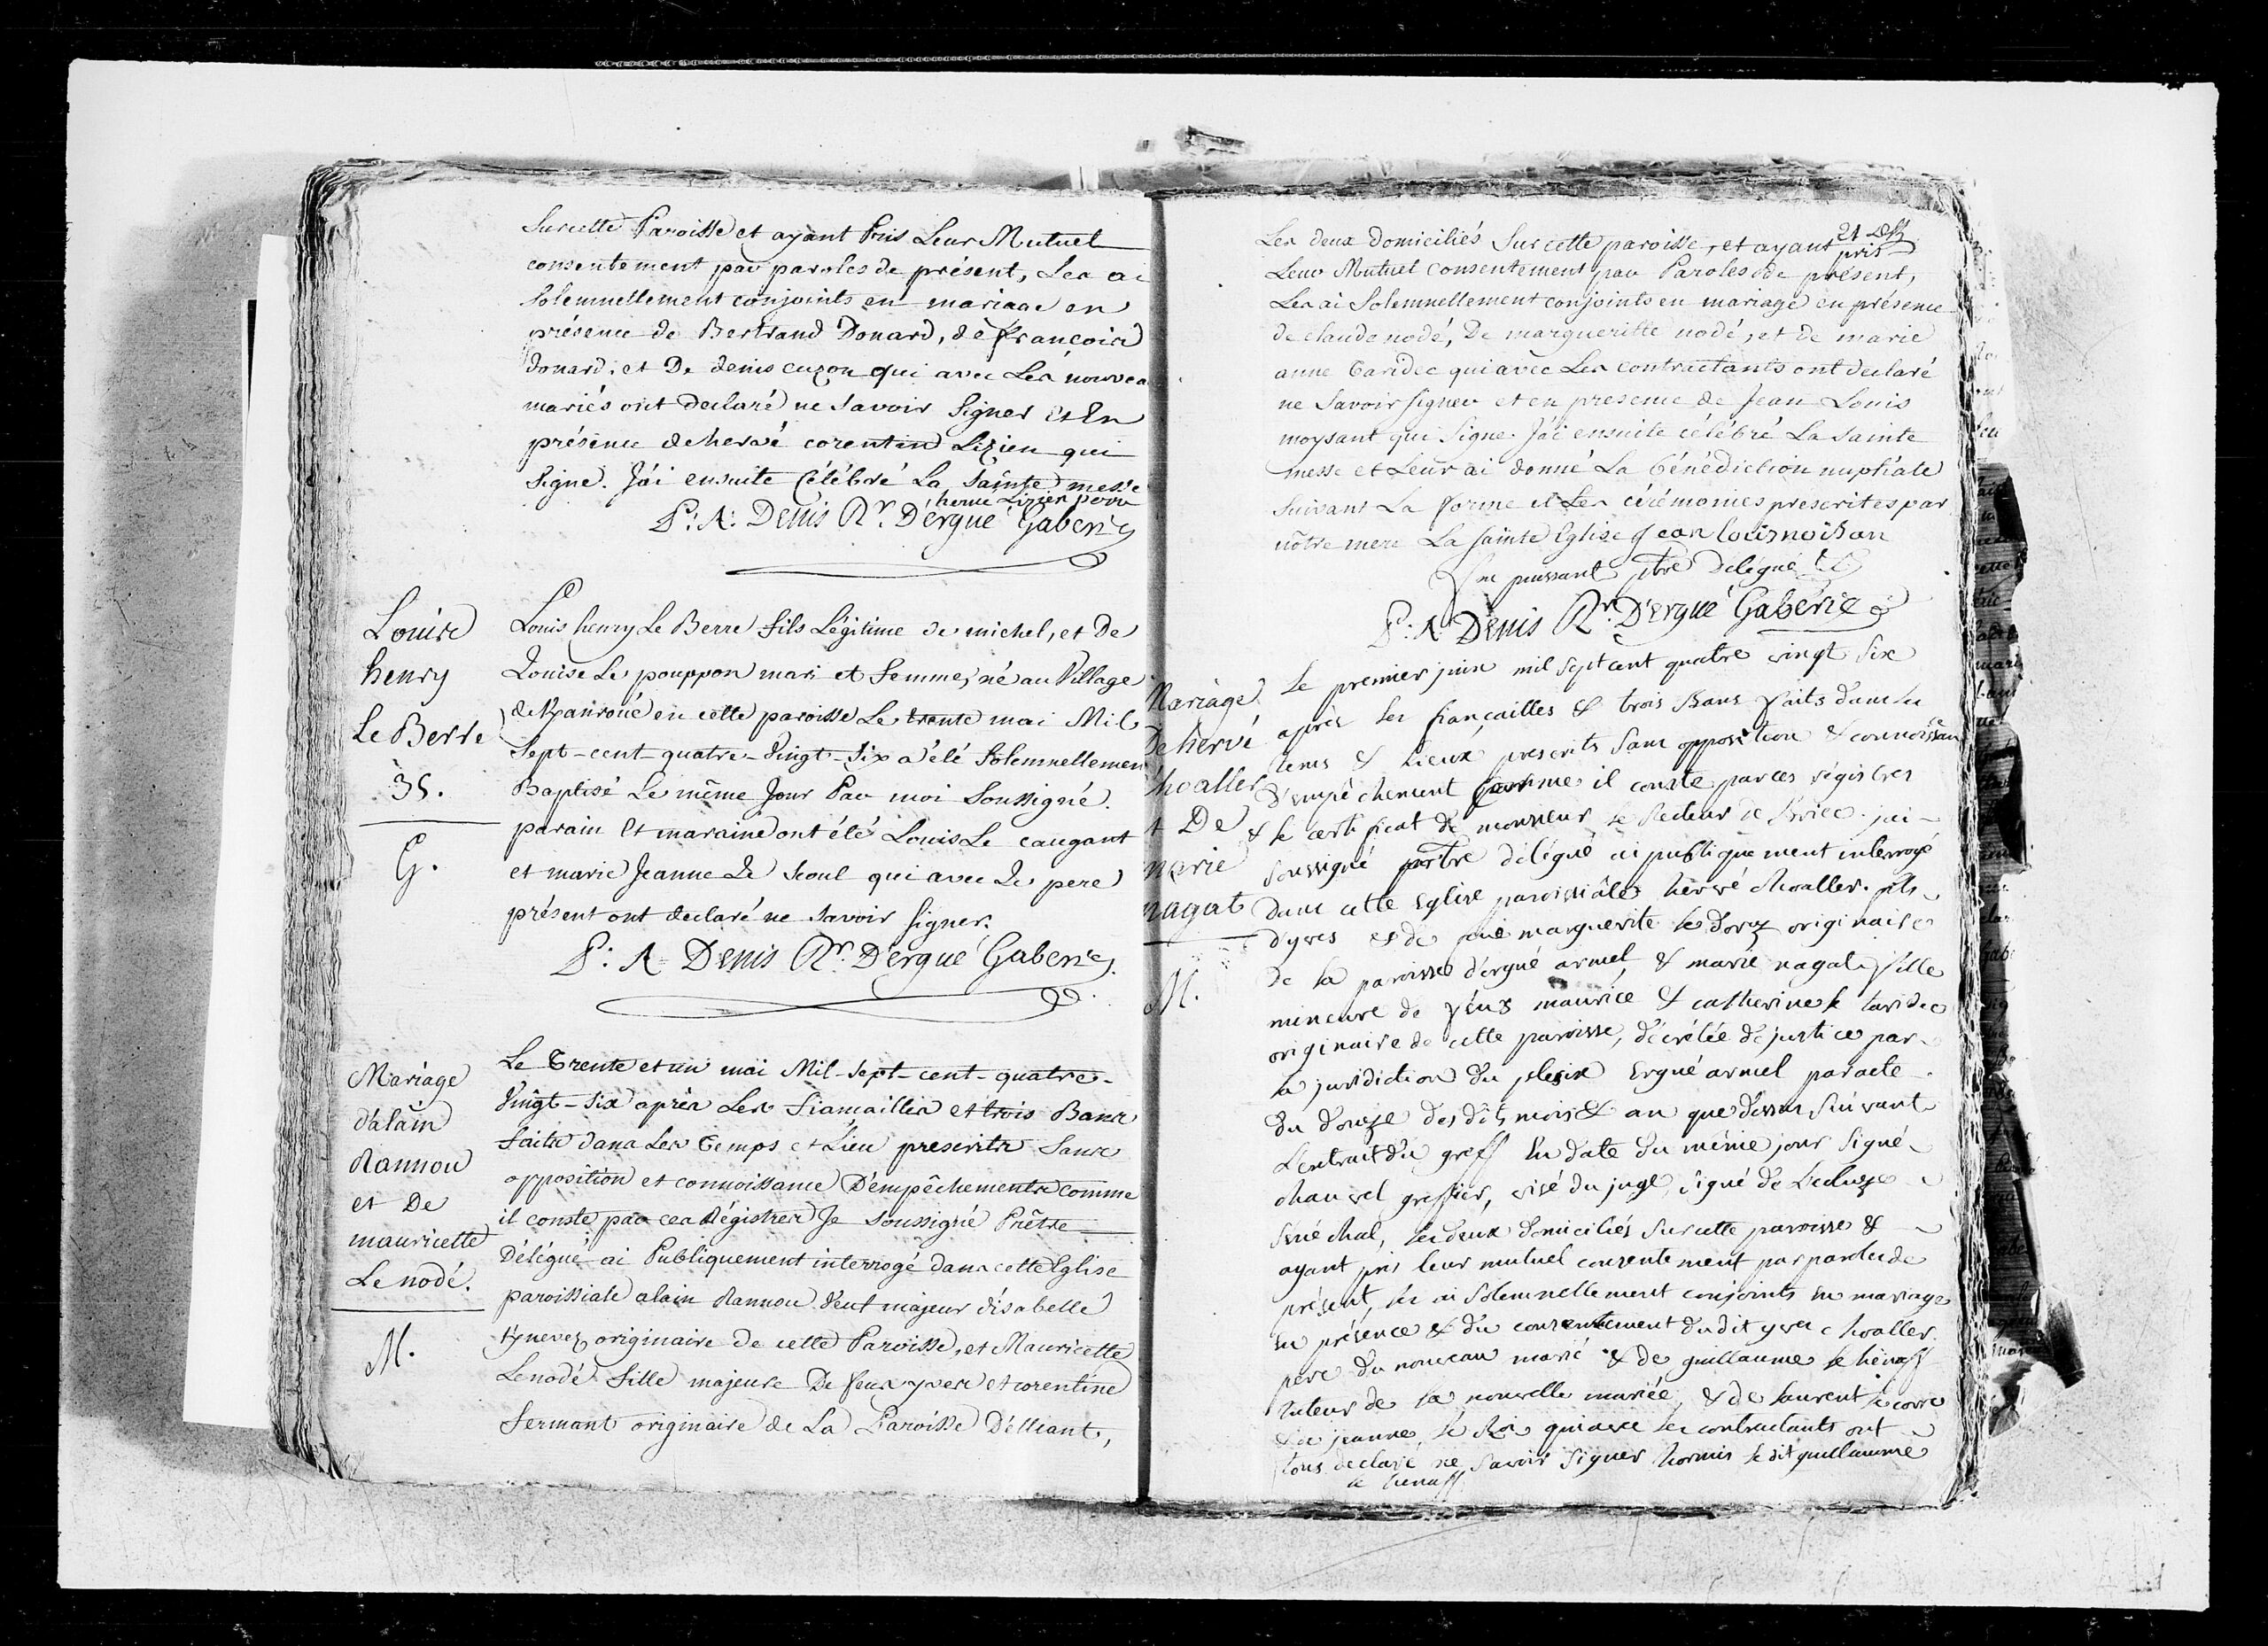 Sur cette Paroisse et ayant Pris Leur Mutuel
consentement par paroles de présent, Les ai
Solemnellement conjoints en mariage en
présence de Bertrand Donard, de françois
donard, et De denis cuzon qui avec Les nouvea
mariés ont declaré ne Savoir Signer Et En
présence de hervé corentin Lizien qui
Signe. J'ai ensuite Célébré La Sainte messe
herve Lizien
P: A: Denis Rr. D'ergué Gaberic
Louis
henry
Le Berre
35.
G.
Louis henry Le Berre fils Légitime de michel, et de
Louise Le pouppon mari et femme, né au Village
en cette paroisse Le trente mai Mil
Sept-cent-quatre-Vingt-Six a été Solemnellemen
Baptisé Le même Jour Par moi Soussigné.
parain Et maraine ont été Louis Le caugant
et marie Jeanne Le Seoul qui avec Le pere
présent ont declaré ne Savoir Signer.
P: A: Denis Rr. D'ergué Gaberic
Mariage
d'alain
Rannou
et De
mauricette
Le nodé.
M.
Le Trente et un mai Mil-Sept-cent-quatre-
Vingt-Six après Les fiancailles et trois Bans
faits dans Les Temps et Lieu prescrits Sans
opposition et connoissance D'empêchements comme
il conste par ces Régistres Je Soussigné Prêtre
Délégué ai Publiquement interrogé dans cette Eglise
paroissiale alain Rannou veuf majeur d'isabelle
tynevez originaire de cette Paroisse, et Mauricette
Le nodé fille majeure De feux yves et corentine
fermant originaire de La Paroisse D'Elliant,
21
Les deux domiciliés Sur cette paroisse, et ayant pris
Leur Mutuel consentement par Paroles de présent,
Les ai Solemnellement conjoints en mariage en présence
de claude nodé, De margueritte nodé, et de marie
anne Caridec qui avec Les contractants ont declaré
ne Savoir signer et en presence de Jean Louis
moysant qui Signe. J'ai ensuite célébré La Sainte
messe et Leur ai donné La bénédiction nuptiale
Suivant La forme et Les cérémonies prescrites par
nôtre mere La Sainte Eglise Jean
puissant ptre délégué
P: A: Denis Rr. D'ergué Gaberic
Mariage
De hervé
hoaller
t De
marie
nagat
M.
Le premier juin mil sept cent quatre vingt Six
après les fiançailles & trois Bans faits dans les
tems & Lieux prescrits Sans opposition & connoissan
d'empêchement comme il conste par ces régistres
& le certificat de monsieur le Recteur de Briec. j'ai
soussigné prêtre délégué ai publiquement interrogé
dans cette Eglise paroissiâle hervé choaller. fils
d'yves et de feüe marguerite le dorz originaire
de la paroisse d'ergué armel & marie nagat fille
mineure de feus maurice & catherine le taridec
originaire de cette paroisse, décrétée de justice par
la juridiction du plesix Ergué armel par acte
du douze des dits mois & an que dessus Suivant
L'extrait du greff En date du même jour Signé
chauvel greffier, visé du juge, Signé de L'ecluze
Sénéchal, les deux domiciliés Sur cette paroisse &
ayant pris leur mutuel consentement par paroles de
présent, les ai Solemnellement conjoints en mariage
en présence & du consentement dudit yves choaller
pere du nouveau marié & de guillaume le hénaff
tuteur de la nouvelle mariée, & de laurent le corre
& de jeanne le Roi qui avec les contractants ont
tous declaré ne Savoir Signer hormis le dit guillaume
le henaff